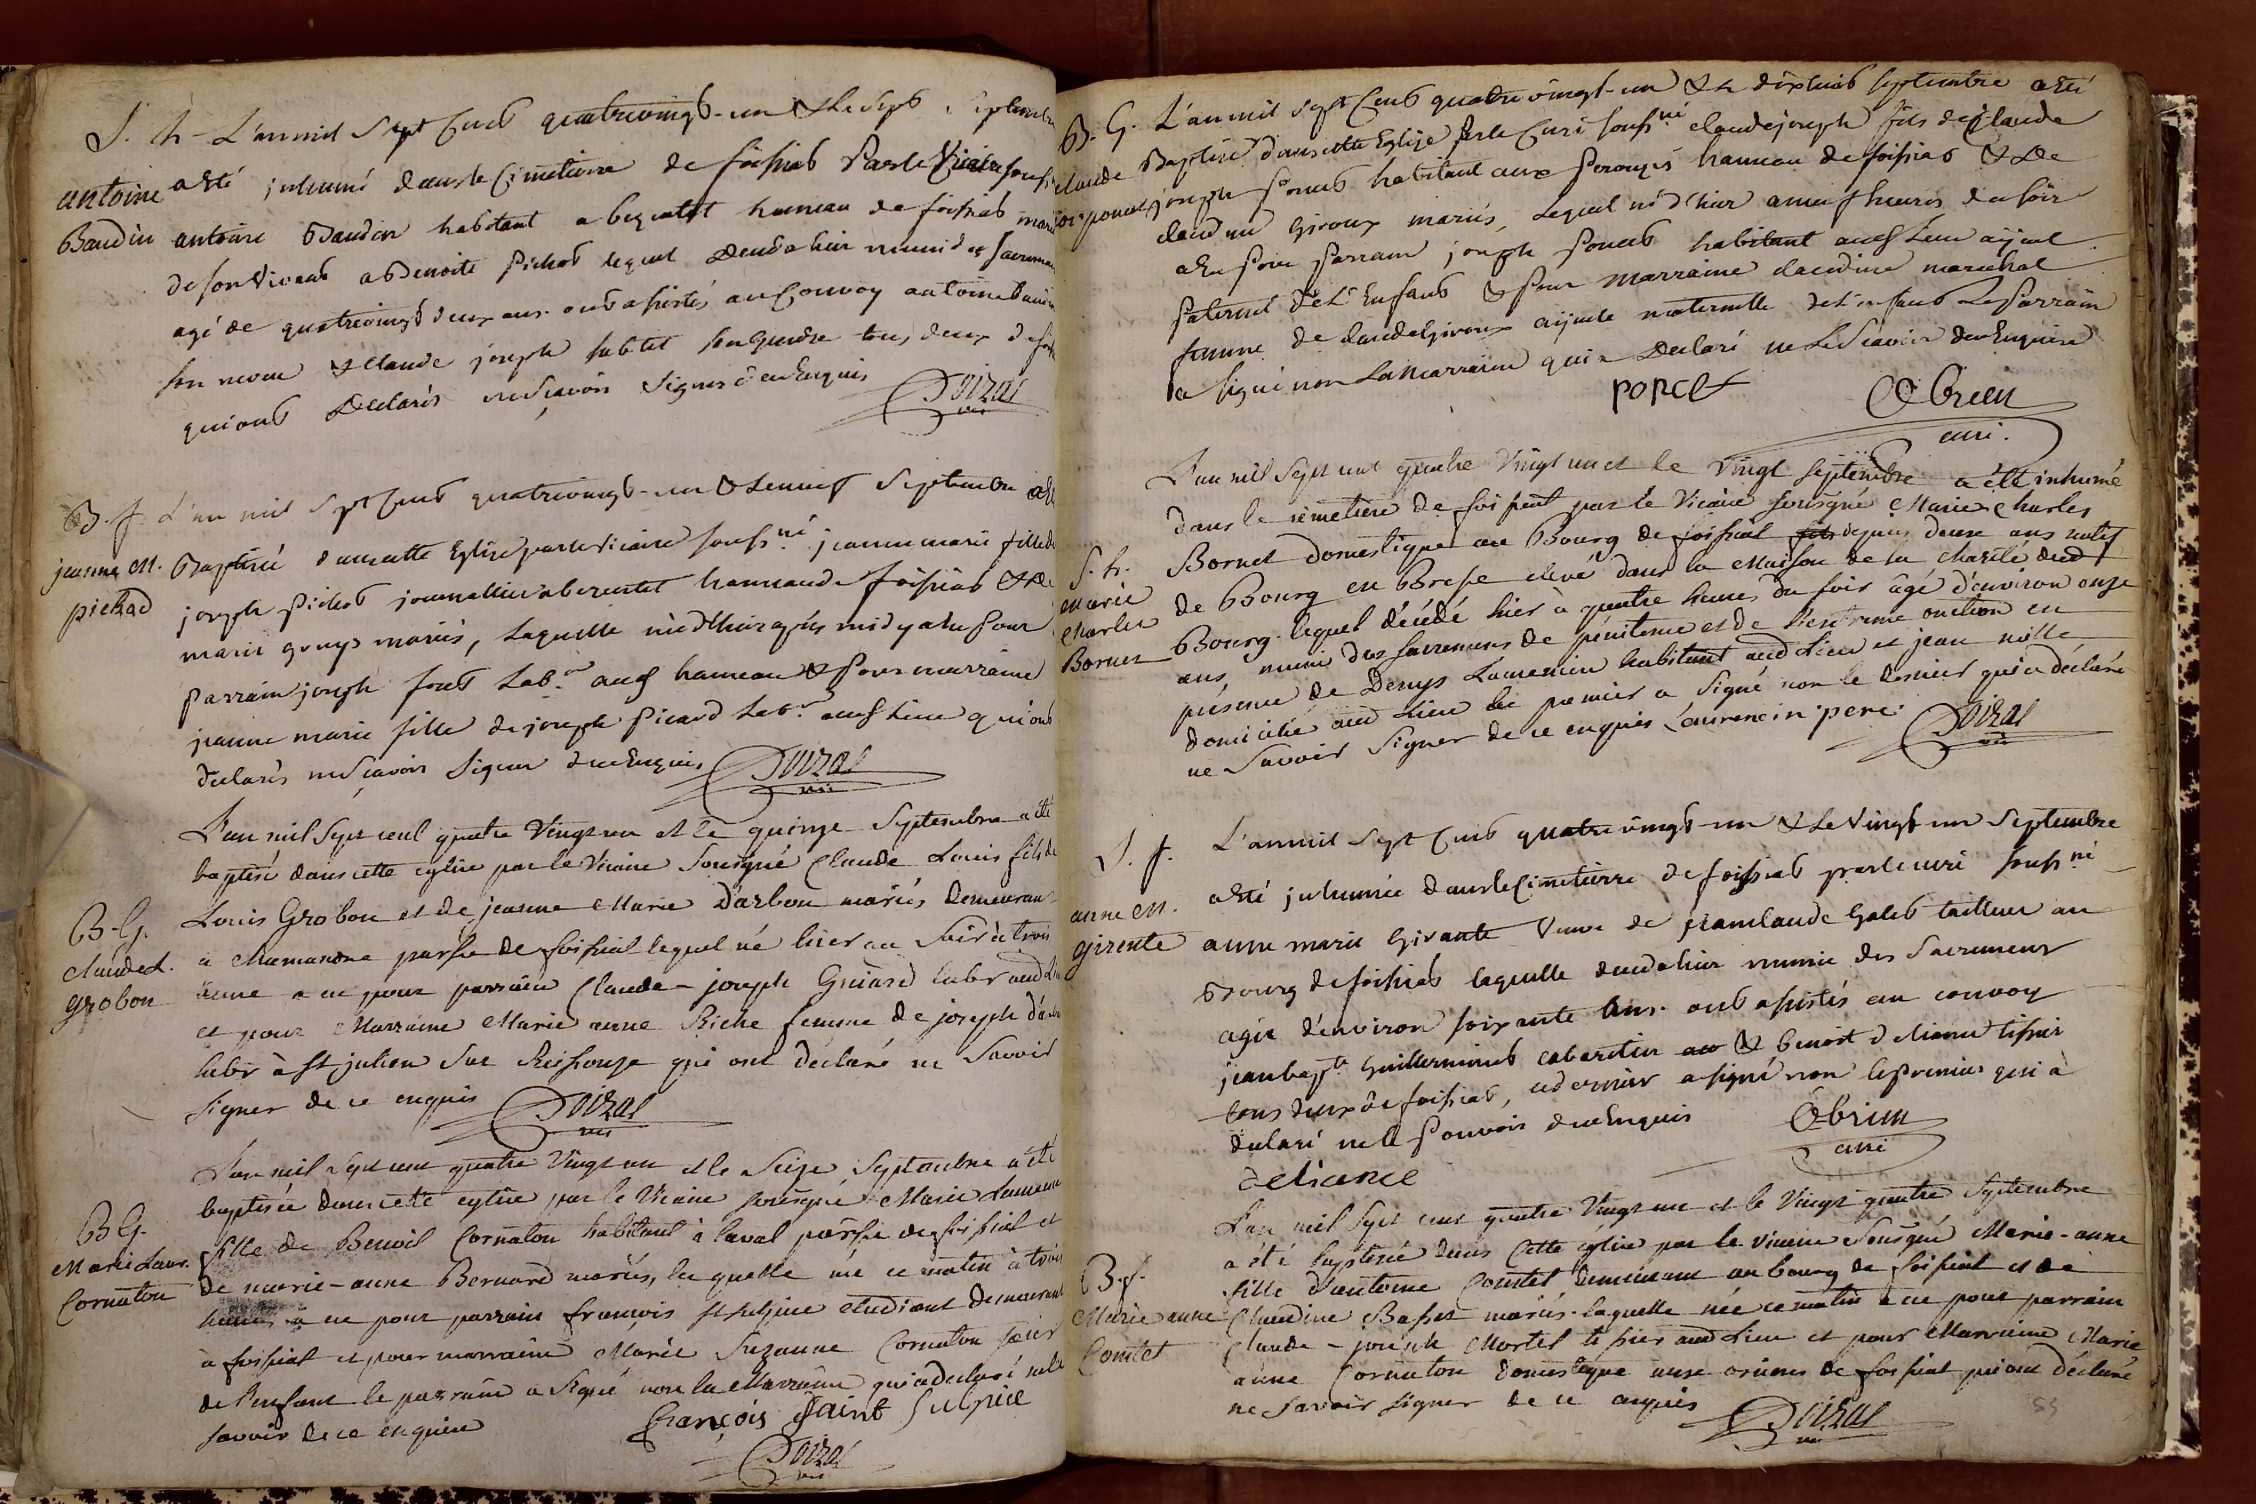 S. h. L'an mil Sept Cents quatrevingt-un & le Sept Septembre
antoine a Eté inhumé dans le Cimetierre de foissiat Par le Vicaire
Baudin antoine Baudin habitant a hameau de foissiat
de son Vivant a Benoite Pichot lequel Deceda hier muni des
agé de quatrevingt deux ans. ont assistés au Convoy antoine
son neveu & Claude joseph son Gendre tous deux de
qui ont Déclarés ne Sçavoir Signer de ce Enquis
Doizas
vic
B. f. L'an mil Sept Cents quatrevingt-un & le neuf Septembre a Eté
jeanne M. Baptisée dans cette Eglise par le Vicaire soussné jeanne marie fille de
pichad joseph Pichot journallier hameau de foissiat & de
marie mariés, laquelle née d'hier après midy a Eu Pour
Parrain joseph Labr aud hameau & Pour marraine
jeanne marie fille de joseph Picard Labr aud Lieu qui ont
déclarés ne Sçavoir Signer de ce Enquis Doizas
vic
L'an mil Sept cent quatre Vingt un et le quinze Septembre a été
baptisé dans cette eglise par le Vicaire Sousigné Claude Louis fils de
B. G. Louis Grobon et de jeanne Marie Darbon mariés Demeurant
Claude L. à Chamandre parsse de foissiat lequel né hier au Soir à trois
Grobon heure a eu pour parrain Claude-joseph labr aud
et pour Marraine Marie anne Riche femme de joseph
labr à St julien Sur Reissouze qui ont déclaré ne Savoir
Signer de ce enquis Doizas
vic
L'an mil Sept cent quatre Vingt un et le Seize Septembre a été
baptisée dans cette eglise par le Vicaire Sousigné Marie
B G. fille de Benoit Cornaton habitant à laval parsse de foissiat et
Marie Laur. de marie-anne Bernard mariés, laquelle née ce matin à trois
Cornaton heures a eu pour parrain françois St sulpice etudiant Demeurant
à foissiat et pour marraine Marie Suzanne Cornaton Sœur
de l'enfant le parrain a Signé non la Marraine qui a déclaré ne le
savoir de ce enquise françois Saint Sulpice
Doizas
vic
B. G. L'an mil Sept Cents quatrevingt-un & le dixhuit Septembre a Eté
Claude Baptisé dans cette Eglise par le Curé soussné claude joseph fils de Claude
jos. poncet joseph Poncet habitant aux hameau de foissiat & de
claudine Giroux mariés, Lequel né d'hier a neuf heures du soir
a Eu Pour Parrain joseph Poncet habitant aud Lieu aÿeul
Paternel de L'Enfant & Pour marraine claudine marechal
femme de claude Giroux aÿeule maternelle de L'enfant Le Parrain
a Signé non La Marraine qui a Déclaré ne Le Sçavoir de ce Enquise
poncet
curé.
L'an mil Sept cent quatre Vingt un et le Vingt Septembre a été inhumé
dans le cimetière de foissiat par le Vicaire Sousigné Marie Charles
S. h. Bornet domestique au Bourg de foissiat depuis deux ans natif
Marie de Bourg en Bresse elevé dans la Maison de la Charité dud
Charles Bourg. lequel décédé hier à quatre heures du soir âgé d'environ onze
Bornet ans, muni des Sacremens de pénitence et de l'extrème onction en
présence de Denys Laurencin habitant aud Lieu et jean
domicilié aud Lieu le premier a Signé non le dernier qui a déclaré
ne Savoir Signer de ce enquis Laurencin pere. Doizas
vic
S. f. L'an mil Sept Cents quatrevingt-un & Le Vingt un Septembre
anne M. a Eté inhumée dans le Cimetierre de foissiat par le curé soussné
girente anne marie Girante Veuve de jean claude tailleur au
Bourg de foissiat laquelle deceda hier munie des Sacremens
agée d'environ soixante ans. ont assistés au convoy
jean bapte Guilleminot cabaretier & Benoit deliance tissier
tous deux de foissiat, ce dernier a signé non le Premier qui a
déclaré ne le Pouvoir de ce Enquis
curé
deliance
L'an mil Sept cent quatre Vingt un et le Vingt quatre Septembre
a été baptisée dans Cette église par le vicaire Sousigné Marie-anne
B. f. fille d'antoine Comtet demeurant au bourg de foissiat et de
Marie anne Claudine Basset mariés. laquelle née ce matin a eu pour parrain
Comtet Claude-joseph Mortel tissier aud Lieu et pour Marraine Marie
anne Cornaton domestique de foissiat qui ont déclaré
ne Savoir Signer de ce enquis Doizas
vic